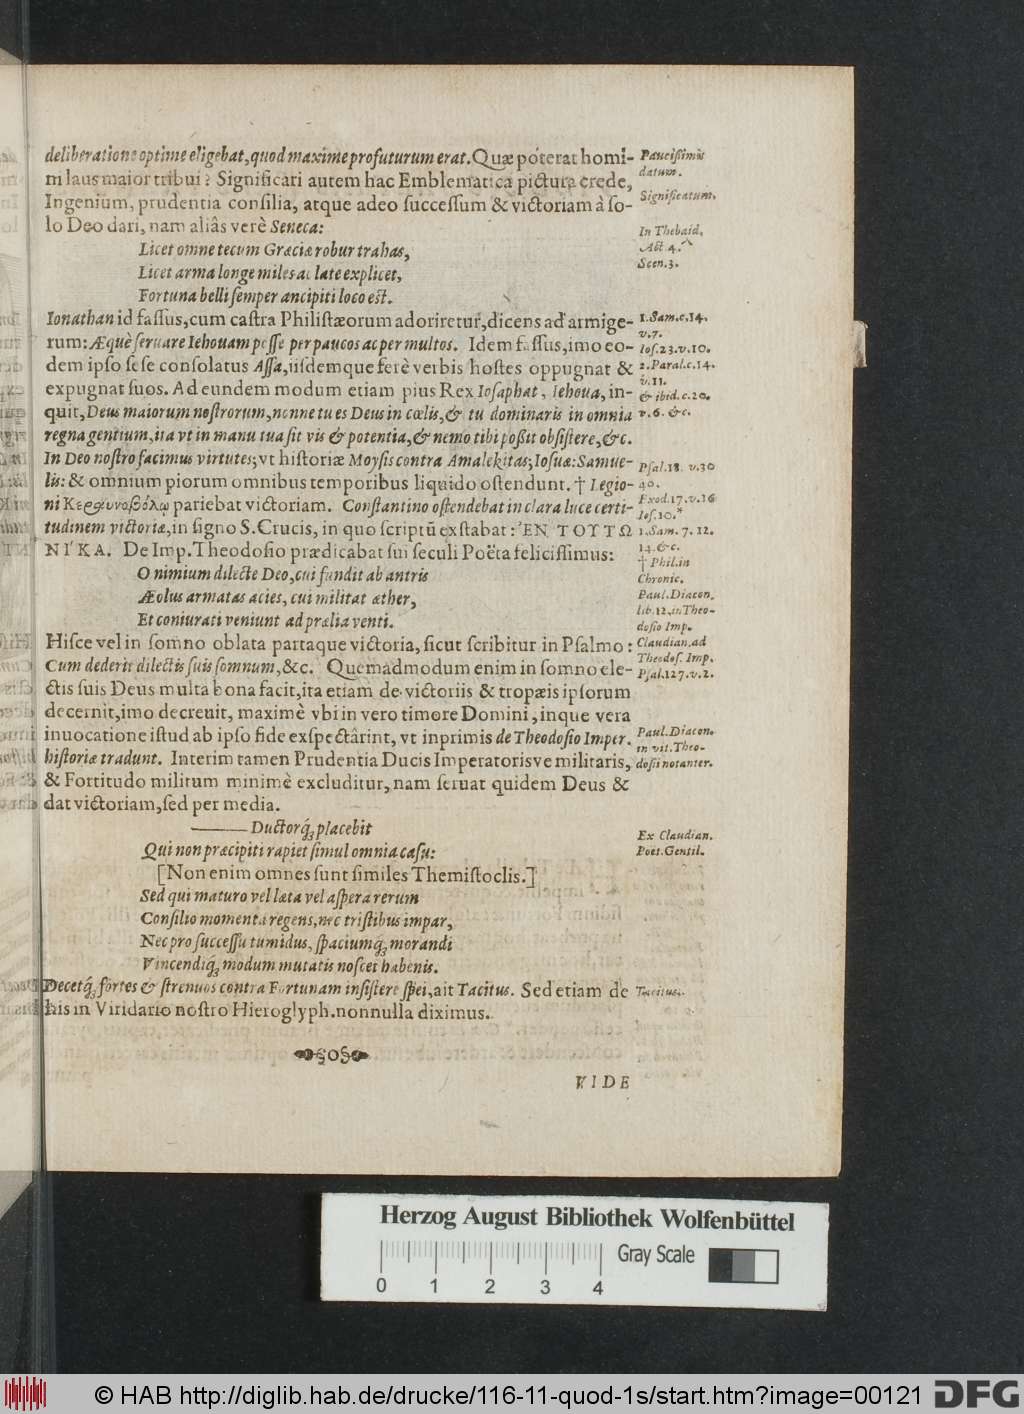 deliberatione optime eligebat, quod maxime profuturum erat. Quæ poterat homi-
ni laus maior tribui? Significari autem hac Emblematica pictura crede,
Ingenium, prudentia consilia, atque adeo successum & victoriam à so-
lo Deo dari, nam aliâs verè Seneca:
Licet omne tecum Græciæ robur trahas,
Licet arma longe miles ac late explicet,
Fortuna belli semper ancipiti loco est.
Ionathan id fassus, cum castra Philistæorum adoriretur, dicens ad armige-
rum: Æquè seruare Iehouam posse per paucos ac per multos. Idem fassus, imo eo-
dem ipso sese consolatus Assa, iisdemque ferè verbis hostes oppugnat &
expugnat suos. Ad eundem modum etiam pius Rex Iosaphat, Iehoua, in-
quit, Deus maiorum nostrorum, nonne tu es Deus in cœlis, & tu dominaris in omnia
regna gentium, ita vt in manu tua sit vis & potentia, & nemo tibi poßit obsistere, &c.
In Deo nostro facimus virtutes; vt historiæ Moysis contra Amalekitas; Iosuæ: Samue-
lis: & omnium piorum omnibus temporibus liquido ostendunt. † Legio-
ni Κεραυνοβόλῳ pariebat victoriam. Constantino ostendebat in clara luce certi-
tudinem victoriæ, in signo S. Crucis, in quo scriptũ exstabat: ἘΝ ΤΟΥΤΩ
ΝΙΚΑ. De Imp. Theodosio prædicabat sui seculi Poëta felicissimus:
O nimium dilecte Deo, cui fundit ab antris
Æolus armatas acies, cui militat æther,
Et coniurati veniunt ad prælia venti.
Hisce vel in somno oblata partaque victoria, sicut scribitur in Psalmo:
Cum dederit dilectis suis somnum, &c. Quemadmodum enim in somno ele-
ctis suis Deus multa bona facit, ita etiam de victoriis & tropæis ipsorum
decernit, imo decreuit, maximè vbi in vero timore Domini, inque vera
inuocatione istud ab ipso fide exspectârint, vt inprimis de Theodosio Imper.
historiæ tradunt. Interim tamen Prudentia Ducis Imperatorisve militaris,
& Fortitudo militum minimè excluditur, nam seruat quidem Deus &
dat victoriam, sed per media.
——— Ductorq́; placebit
Qui non præcipiti rapiet simul omnia casu:
[Non enim omnes sunt similes Themistoclis.]
Sed qui maturo vel læta vel aspera rerum
Consilio momenta regens, nec tristibus impar,
Nec pro successu tumidus, spaciumq́; morandi
Vincendiq́; modum mutatis noscet habenis.
Decetq́; fortes & strenuos contra Fortunam insistere spei, ait Tacitus. Sed etiam de
his in Viridario nostro Hieroglyph. nonnulla diximus.
VIDE
Paucissimis
datum.
Significatum.
In Thebaid.
Act 4.
Scen. 3.
1. Sam. c. 14.
v. 7.
Ios. 23. v. 10.
2. Paral. c. 14.
v. 11.
& ibid. c. 20.
v. 6. &c.
Psal. 18. v. 30
40.
Exod. 17. v. 16
Ios. 10.*
1. Sam. 7. 12.
14. &c.
† Phil. in
Chronic.
Paul. Diacon.
lib. 12, in Theo-
dosio Imp.
Claudian. ad
Theodos. Imp.
Psal. 127. v. 2.
Paul. Diacon.
in vit. Theo-
dosii notanter.
Ex Claudian.
Poet. Gentil.
Tacitus.
Herzog August Bibliothek Wolfenbüttel
Gray Scale
0 1 2 3 4
© HAB http://diglib.hab.de/drucke/116-11-quod-1s/start.htm?image=00121
DFG